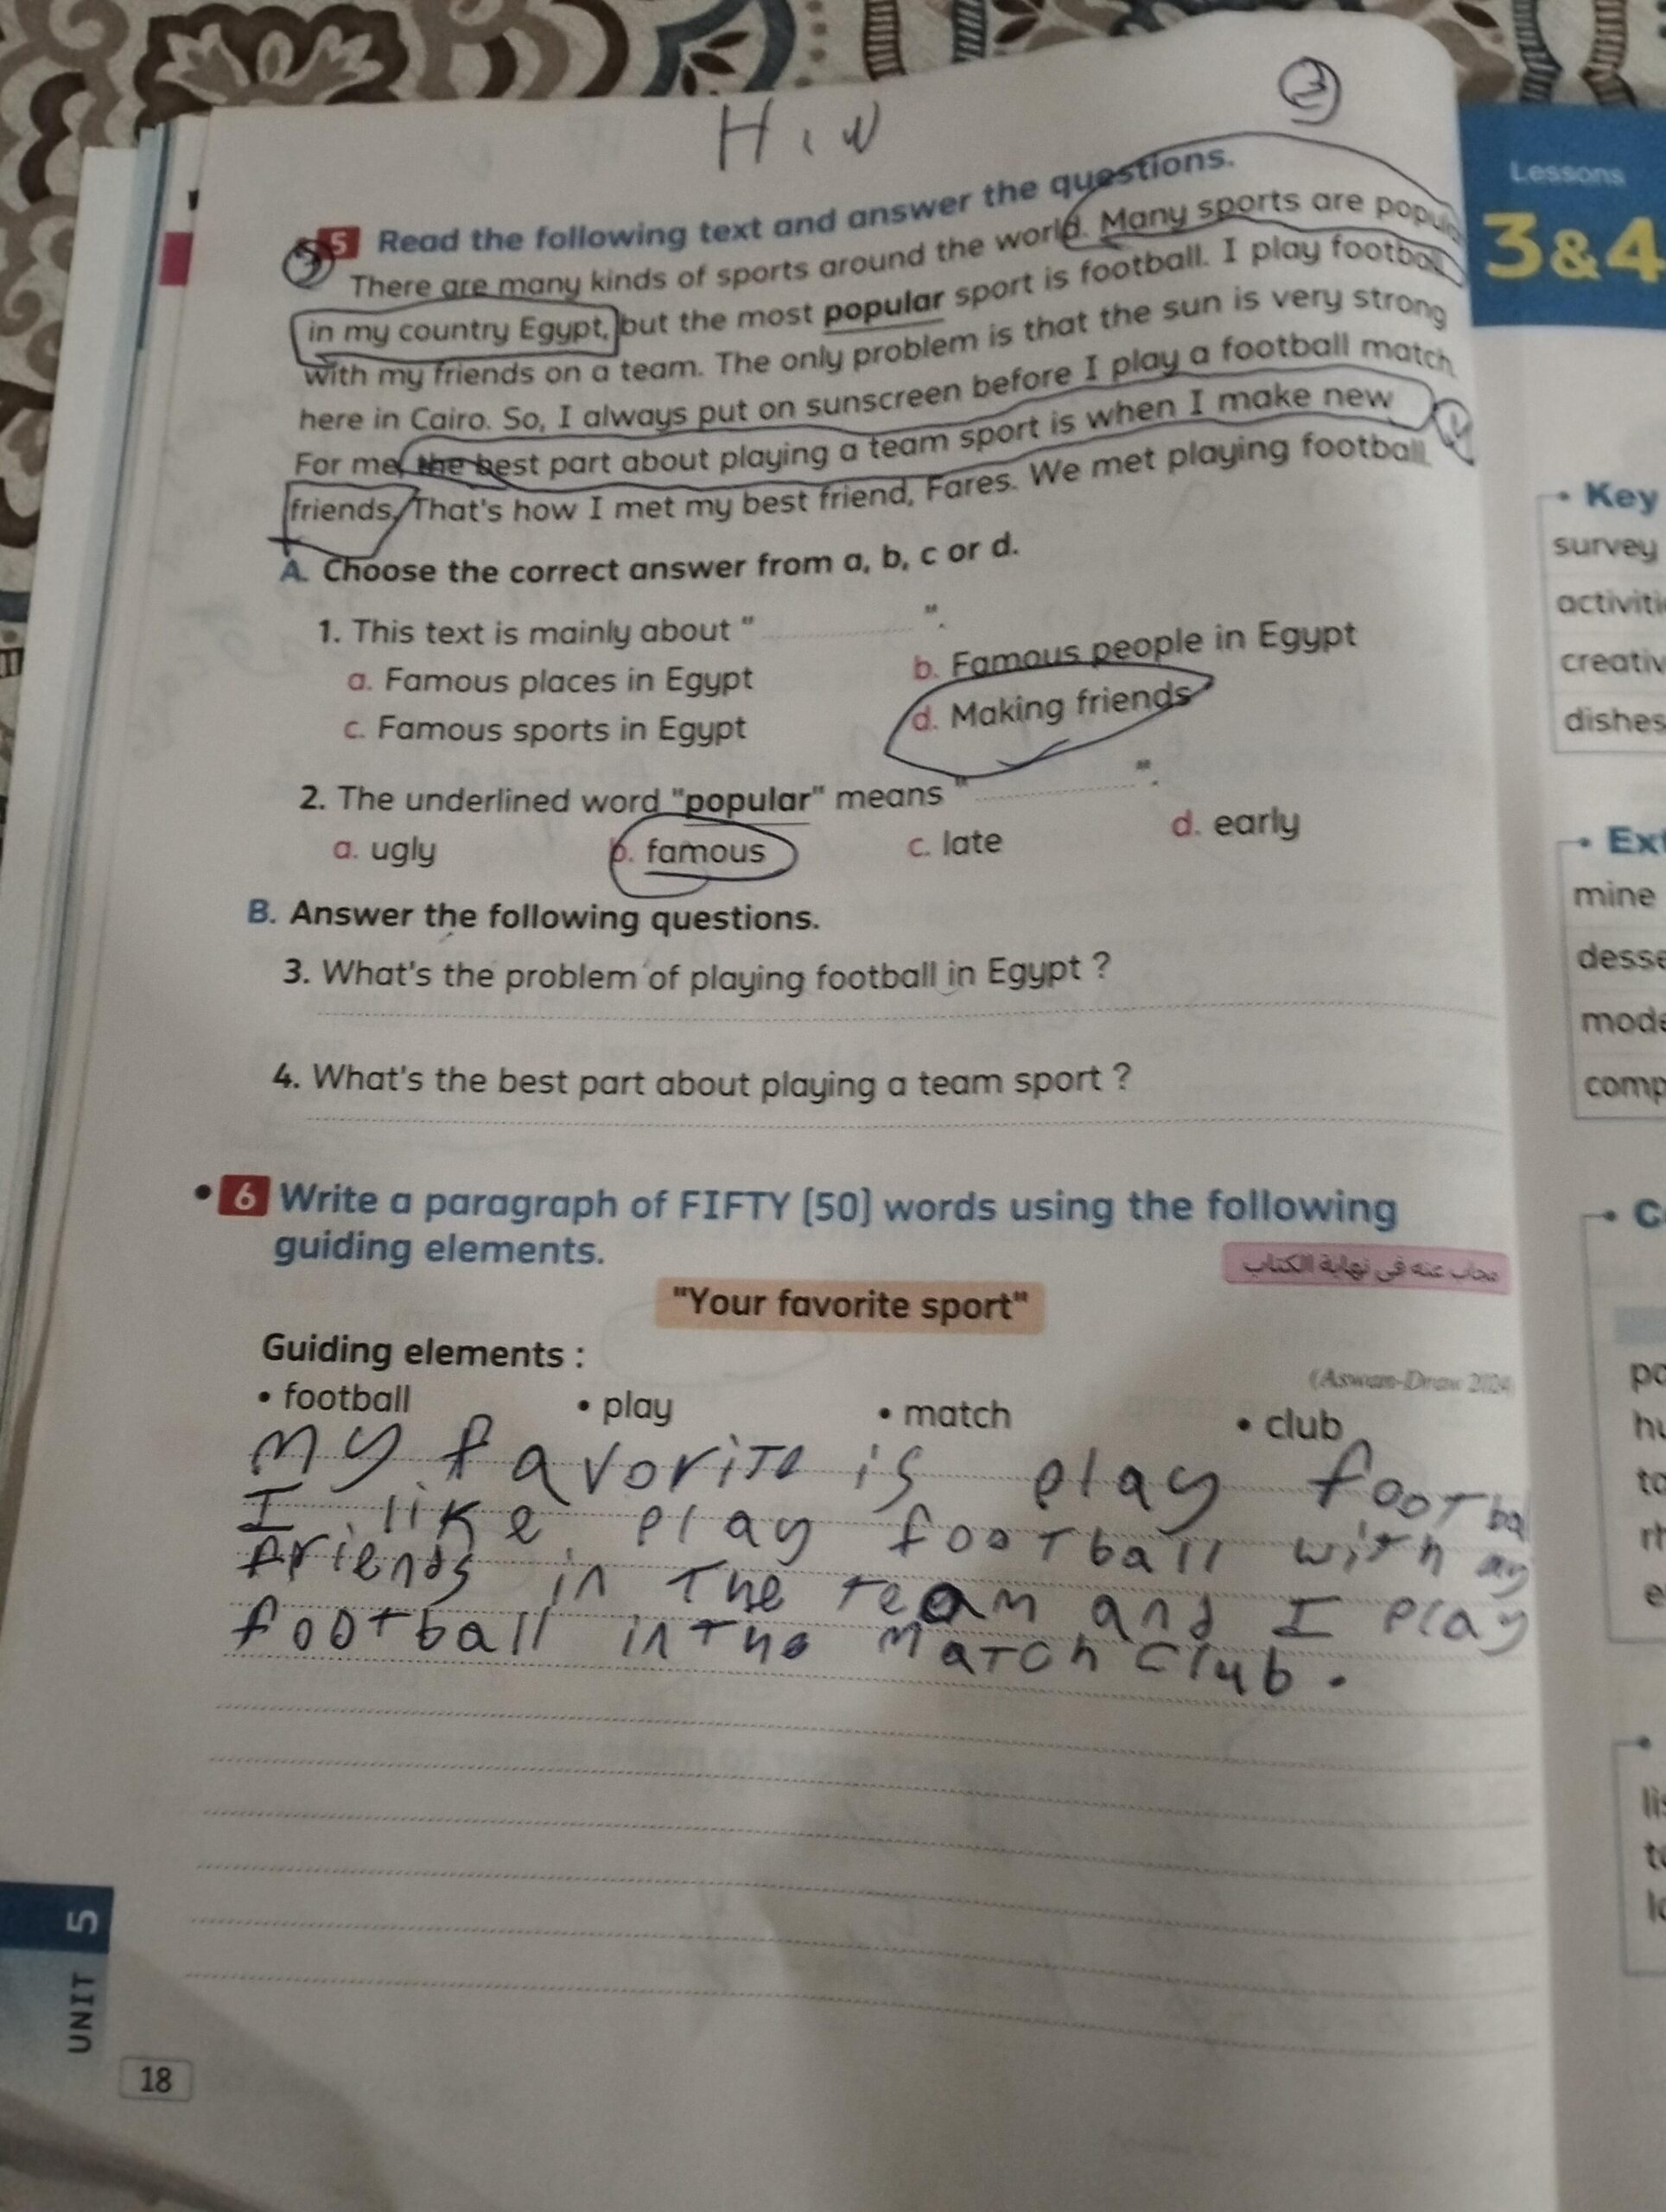 H.W
3
Lessons
3&4
5 Read the following text and answer the questions.
There are many kinds of sports around the world. Many sports are popul
in my country Egypt, but the most popular sport is football. I play football
with my friends on a team. The only problem is that the sun is very strong
here in Cairo. So, I always put on sunscreen before I play a football match.
For me, the best part about playing a team sport is when I make new
4
friends. That's how I met my best friend, Fares. We met playing football.
A. Choose the correct answer from a, b, c or d.
1. This text is mainly about " ".
a. Famous places in Egypt b. Famous people in Egypt
c. Famous sports in Egypt d. Making friends
2. The underlined word "popular" means " ".
a. ugly b. famous c. late d. early
B. Answer the following questions.
3. What's the problem of playing football in Egypt ?
4. What's the best part about playing a team sport ?
6 Write a paragraph of FIFTY (50) words using the following
guiding elements.
مجاب عنه في نهاية الكتاب
"Your favorite sport"
Guiding elements :
(Aswan-Draw 2024)
• football • play • match • club
My favorite is play footbal
I like play football with my
friends in the team and I play
football in the match club.
UNIT 5
18
Key
survey
activiti
creativ
dishes
Ext
mine
desse
mode
comp
C
po
hu
to
rh
e
lis
to
lo